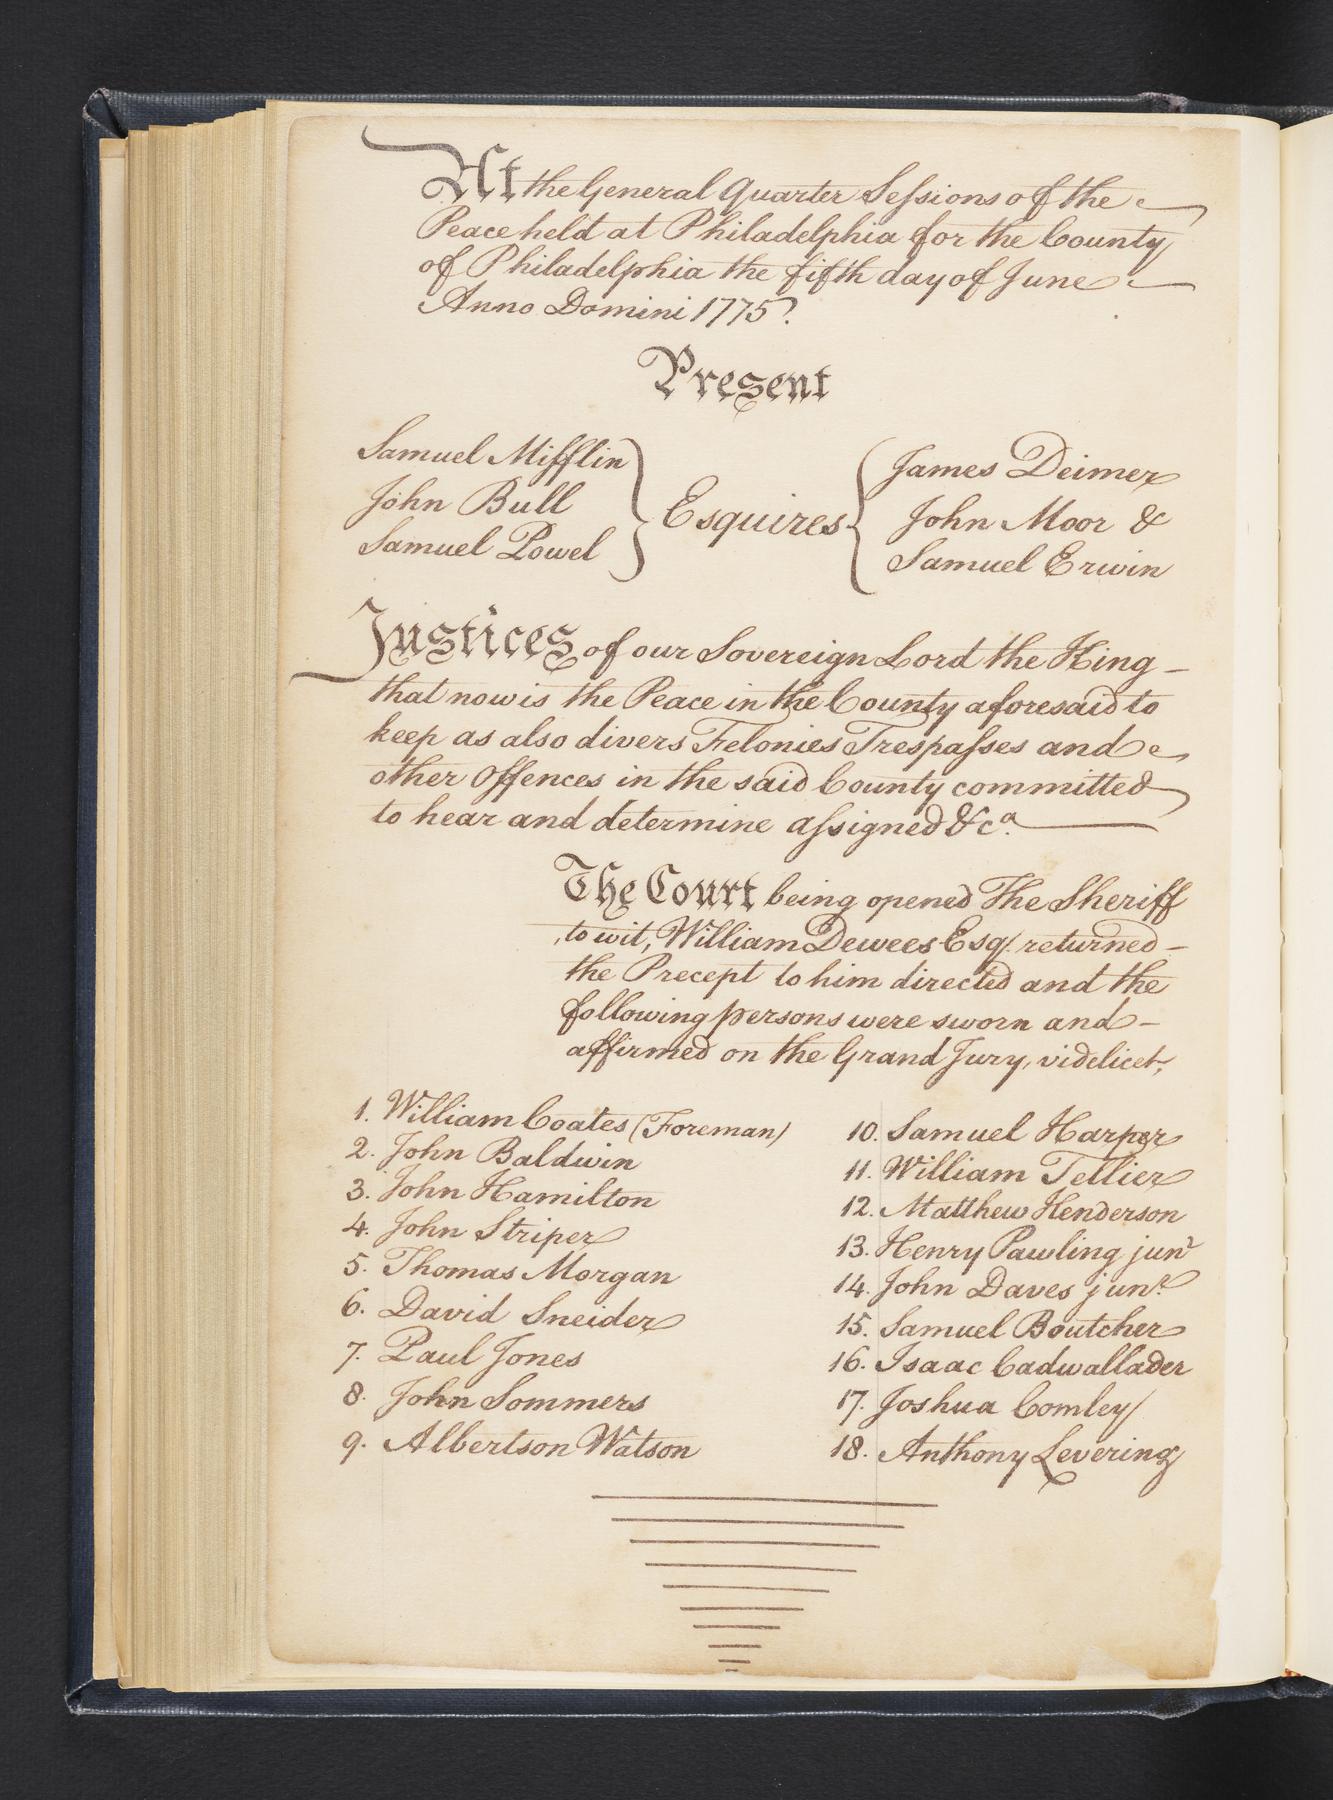 At the General Quarter Sessions of the
Peace held at Philadelphia for the County
of Philadelphia the fifth day of June
Anno Domini 1775.
Present
Samuel Mifflin
John Bull
Samuel Powel
Esquires
James Deimer
John Moor &
Samuel Erwin
Justices of our Sovereign Lord the King
that now is the Peace in the County aforesaid to
keep as also divers Felonies Trespasses and
other Offences in the said County committed
to hear and determine assigned &c.a
The Court being opened The Sheriff
to wit, William Dewees Esq.r returned
the Precept to him directed and the
following persons were sworn and
affirmed on the Grand Jury, videlicet,
1. William Coates (Foreman)
2. John Baldwin
3. John Hamilton
4. John Striper
5. Thomas Morgan
6. David Sneider
7. Paul Jones
8. John Sommers
9. Albertson Watson
10. Samuel Harper
11. William Tellier
12. Matthew Henderson
13. Henry Pawling junr
14. John Daves junr.
15. Samuel Boutcher
16. Isaac Cadwallader
17. Joshua Comley
18. Anthony Levering